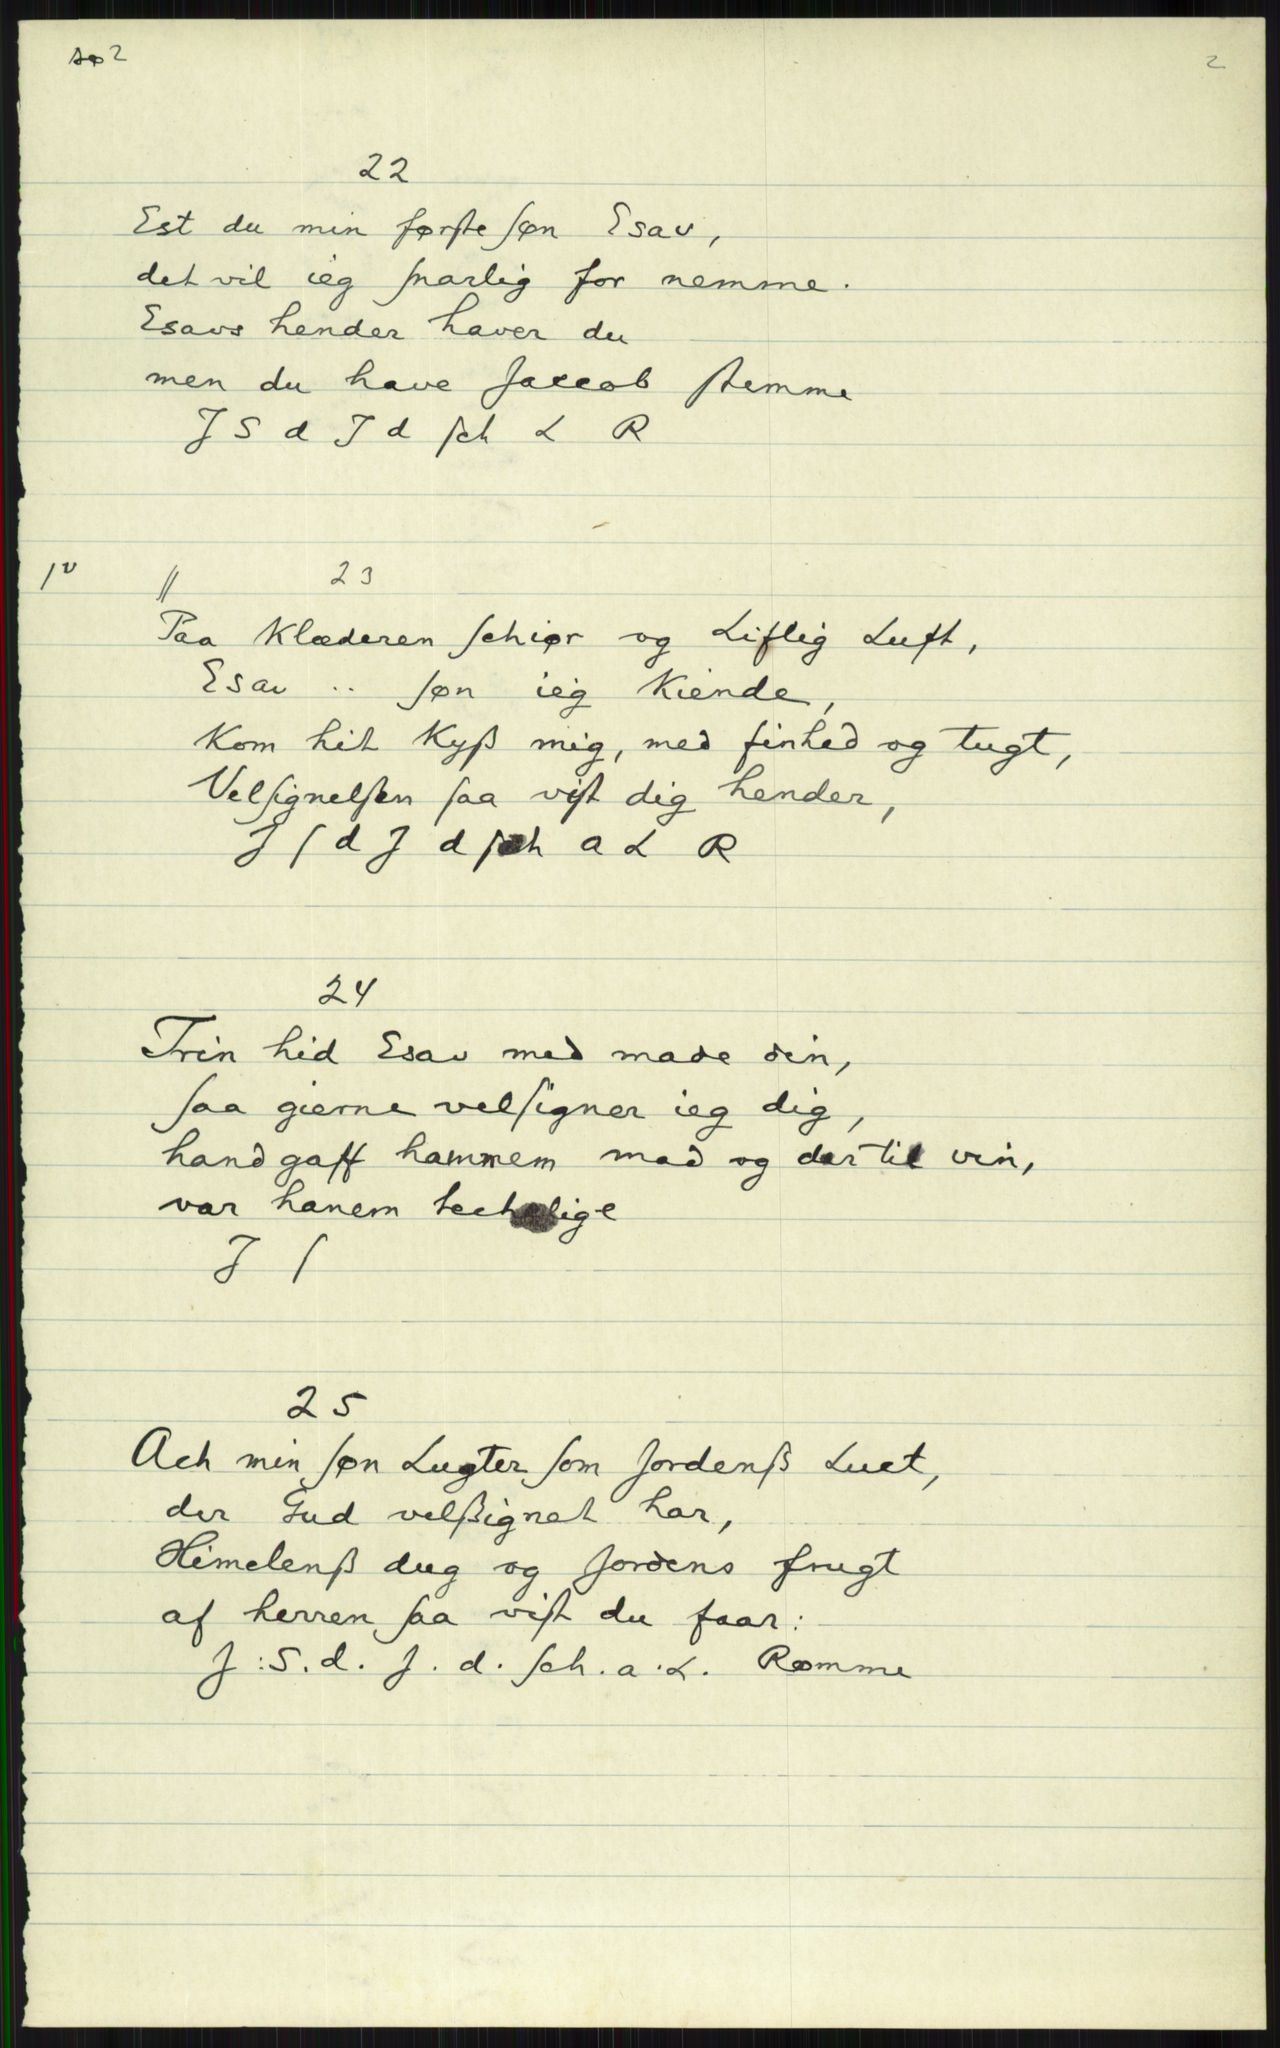 sø 2
2
22
Est du minførſte ſøn Esau,
det vil ieg ſnarlig for nemme.
Esaus hender haver du
men du have Jaccob ſtemme
J S d J d ſch L R
1v
// 23
Paa Klæderen ſchiør og Liflig Luft,
Esau .. ſøn ieg Kiende,
Kom hit Kyß mig, med finhed og tugt,
Velſignelſen ſaa viſt dig hender,
J ſ d J d ſch a L R
24
Trin hid Esau med made din,
ſaa gierne velſigner ieg dig,
hand gaff hammem mad og der til vin,
var hanem
J ſ
25
Ach min ſøn Lugter ſom Jordenß Luct,
der Gud velßignet har,
Himelenß dug og Jordens frugt
af herren ſaa viſt du faar:
J : S. d. J. d. ſch. a. L. Rømme